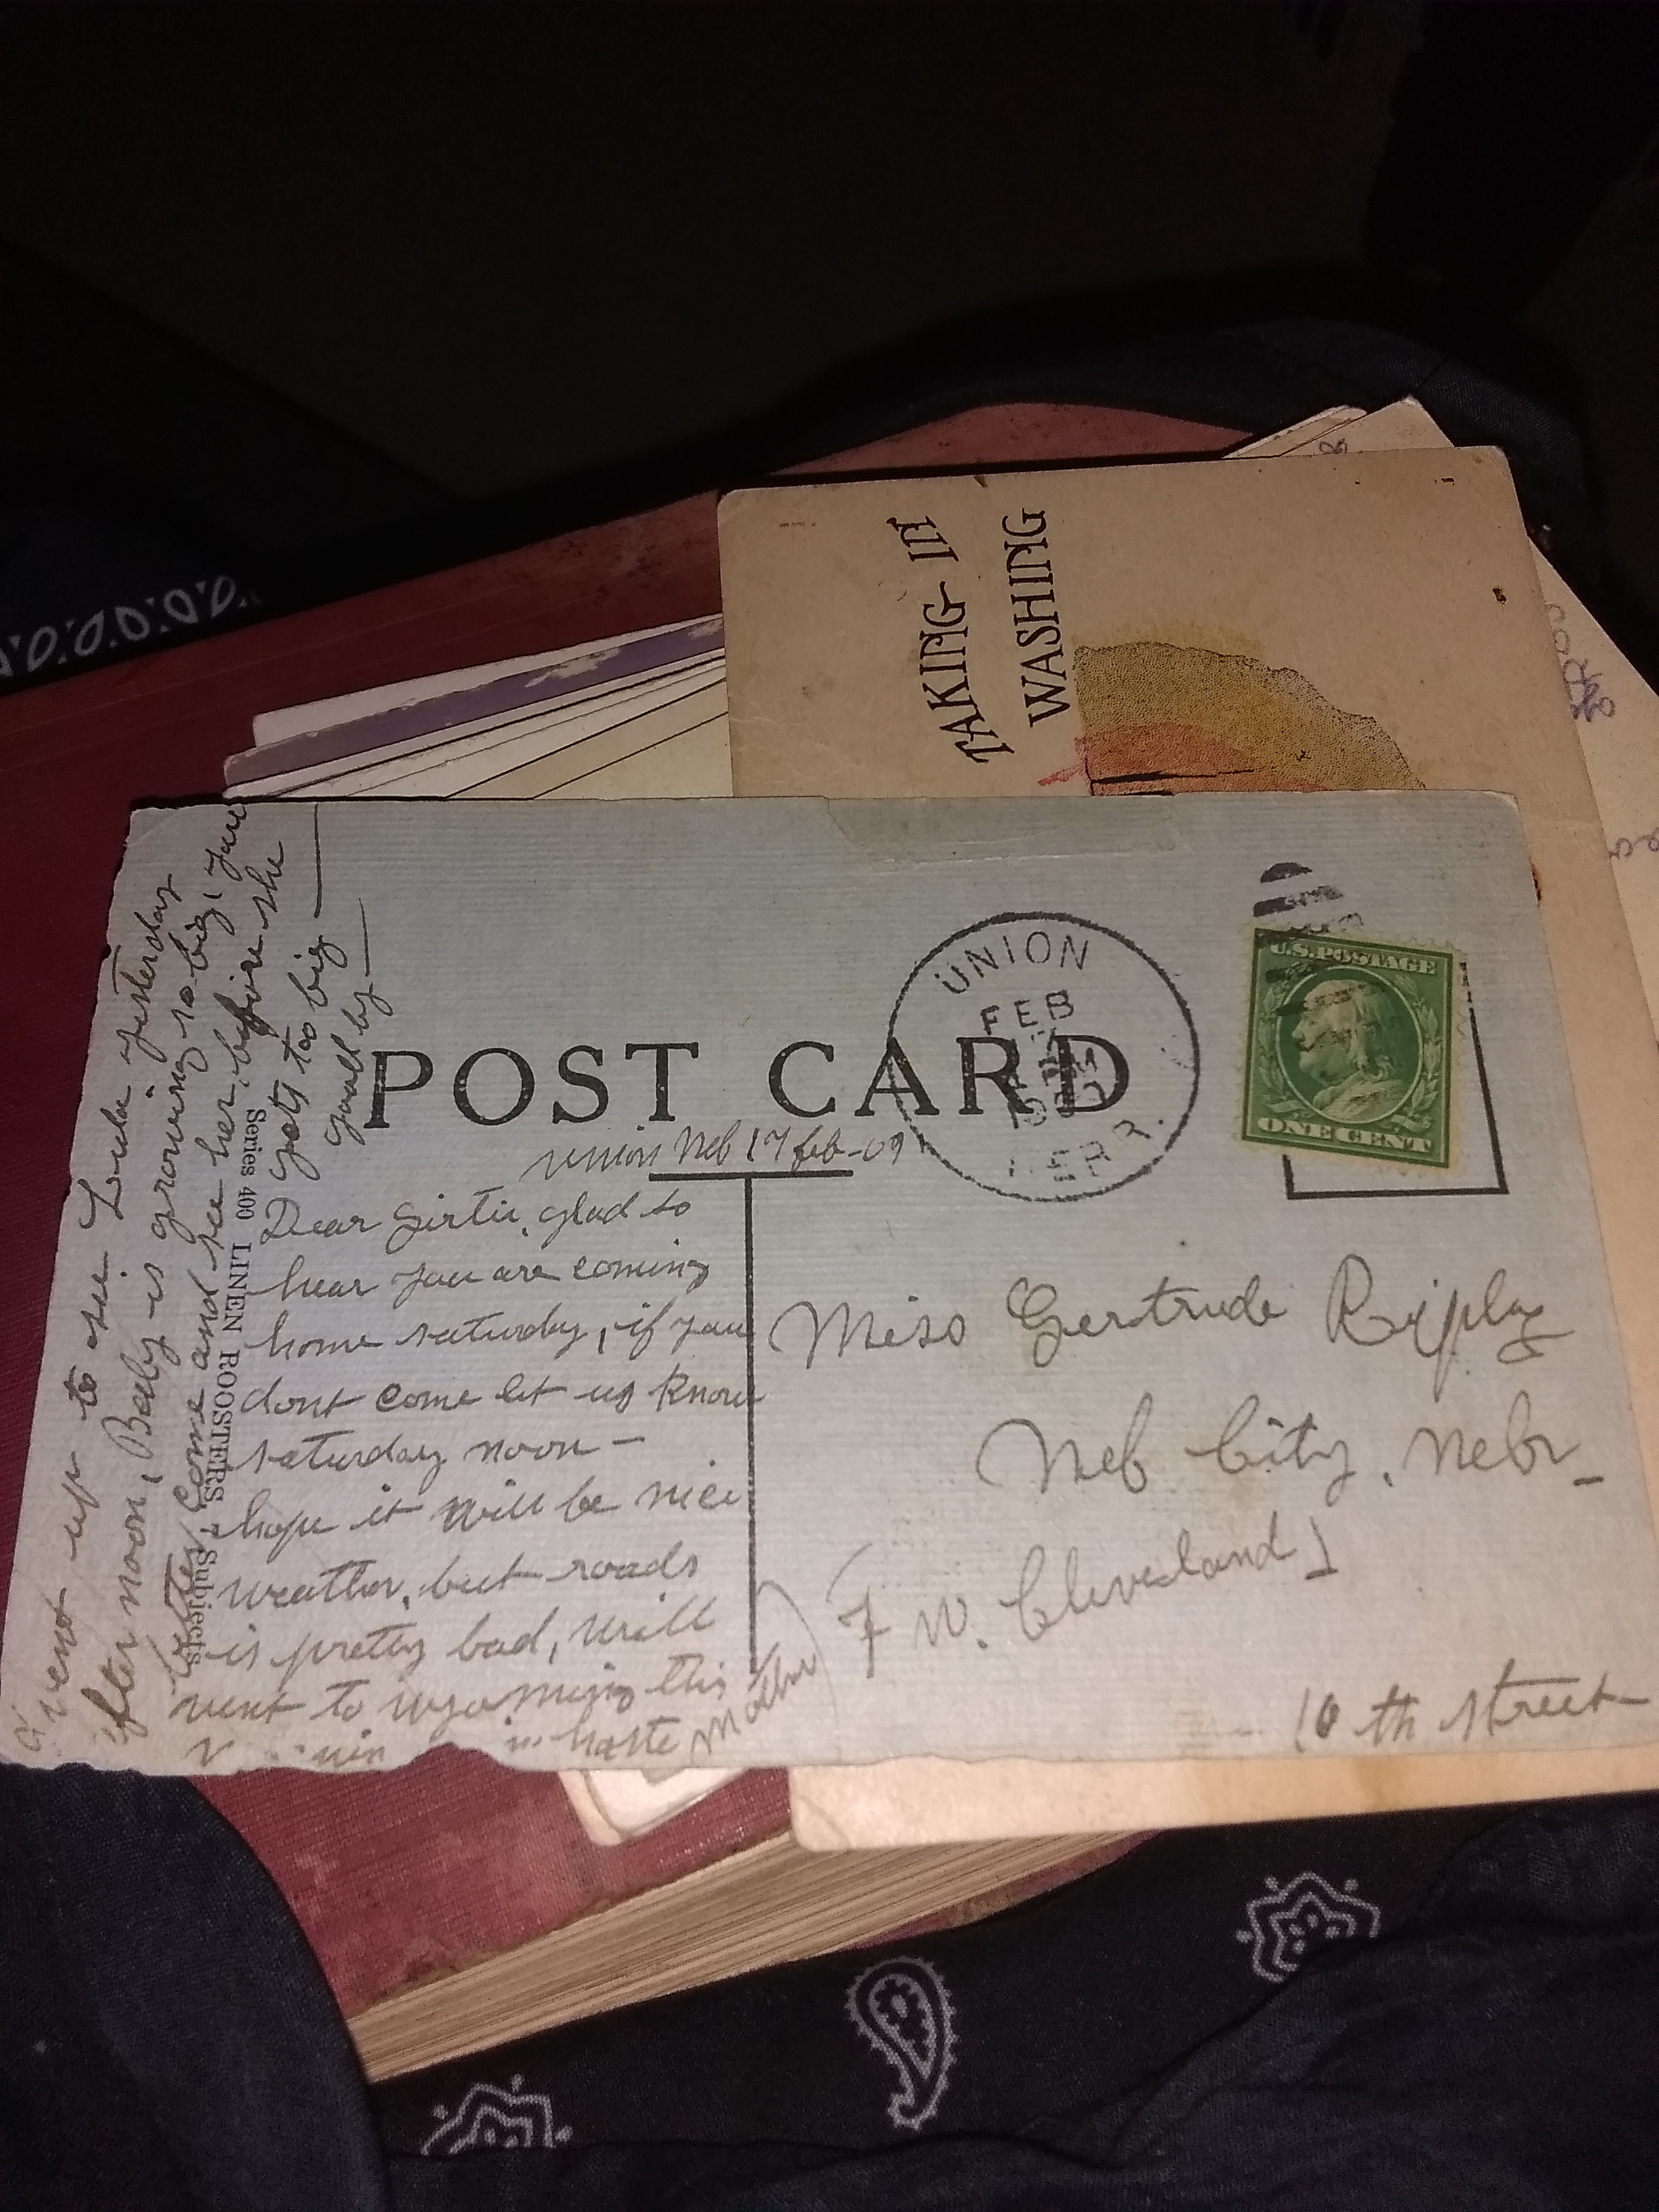 TAKING IN
WASHING
POST CARD
UNION
FEB
NEBR.
U.S. POSTAGE
ONE CENT
Series 400 LINEN ROOSTERS 7 Subjects
union Neb 17 feb-09
Dear Girtie, glad to
hear you are coming
home saturday, if you
dont come let us know
saturday noon —
hope it will be nice
weather, but roads
is pretty bad, will
went to wyoming this
in haste Mother
went up to see Lula yesterday
after noon, Baby is growing so big, you
better come and see her before she
gets too big —
good by —
Miss Gertrude Ripley
Neb City, Nebr_
F W. Cleveland
10 th street